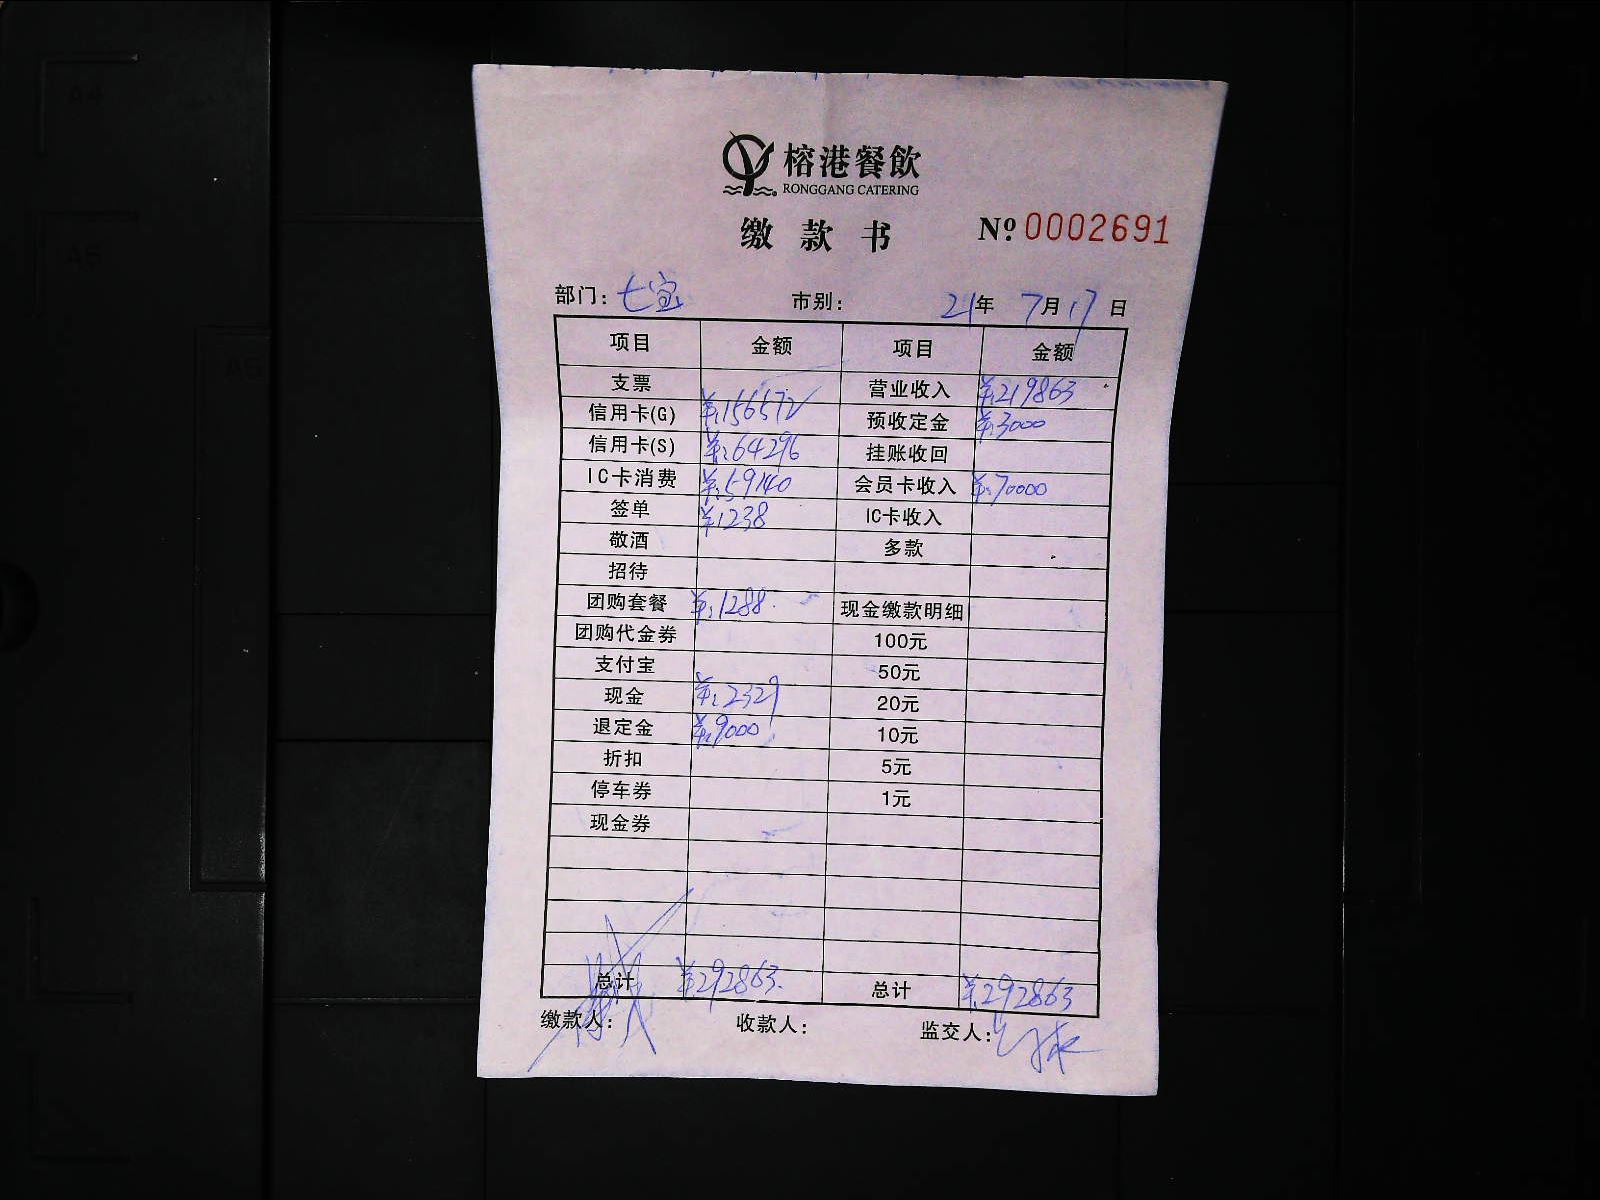 榕港餐飲
RONGGANG CATERING
缴款书 Nº 0002691
部门: 七宝 市别: 21年 7月 17日
项目 金额 项目 金额
支票 营业收入 ¥:219863
信用卡(G) ¥:156572 预收定金 ¥:3000
信用卡(S) ¥:64296 挂账收回
IC卡消费 ¥:59140 会员卡收入 ¥:70000
签单 ¥:238 IC卡收入
敬酒 多款
招待
团购套餐 ¥:1288. 现金缴款明细
团购代金券 100元
支付宝 50元
现金 ¥:2329 20元
退定金 ¥:9000 10元
折扣 5元
停车券 1元
现金券
总计 ¥:292863. 总计 ¥:292863
缴款人: 收款人: 监交人: